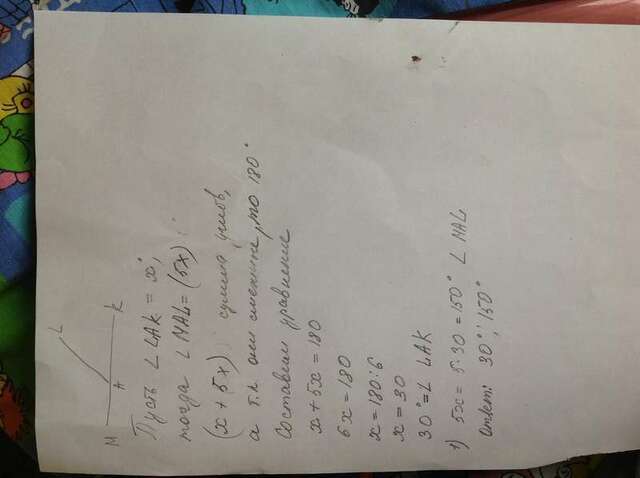 L
M A K
Пусть ∠ LAK = x°,
тогда ∠ MAL = (5x)°
(x + 5x)° сумма углов,
а т.к. они смежные, то 180°
Составим уравнение
x + 5x = 180
6x = 180
x = 180:6
x = 30
30° = ∠ LAK
1) 5x = 5·30 = 150° ∠ MAL
Ответ: 30°; 150°